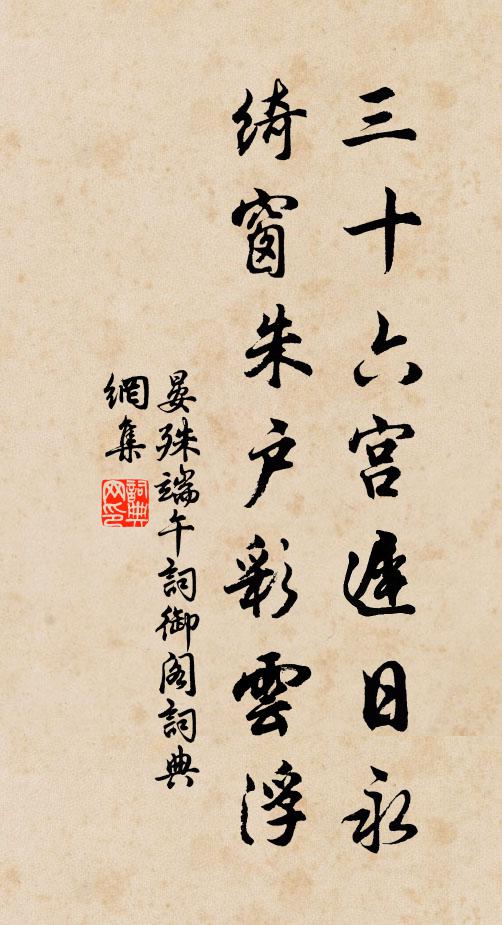 三十六宫遲日永
綺窗朱户彩雲浮
晏殊端午詞御阁詞典
網集
詞典
网印